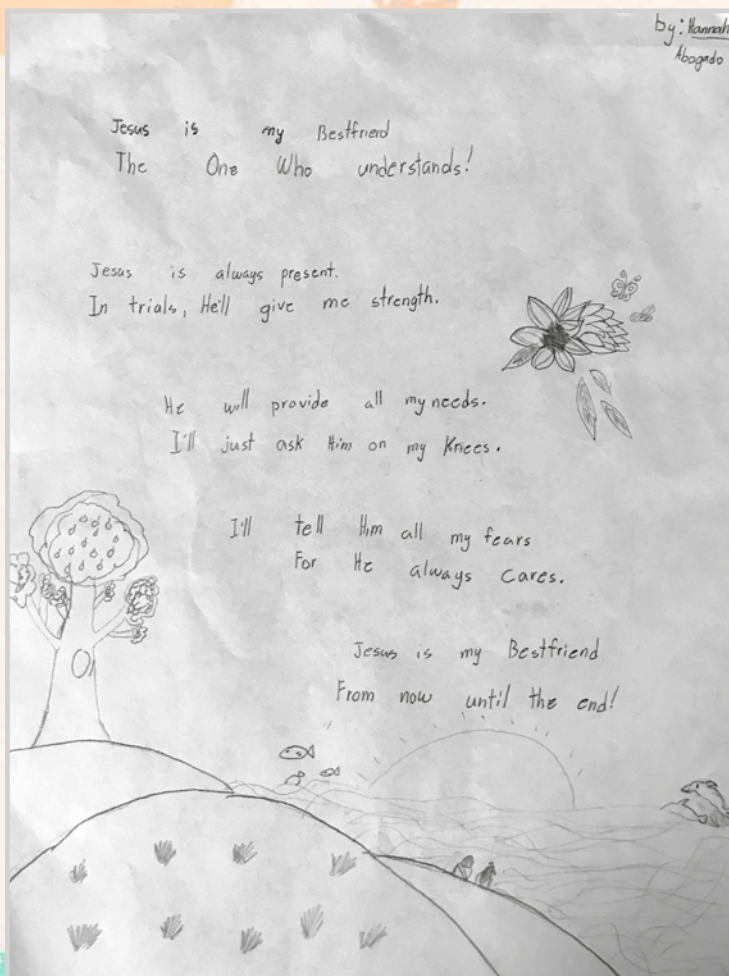 by: Hannah
Abogado
Jesus is my Bestfriend
The One Who understands!
Jesus is always present.
In trials, He'll give me strength.
He will provide all my needs.
I'll just ask Him on my Knees.
I'll tell Him all my fears
For He always cares.
Jesus is my Bestfriend
From now until the end!